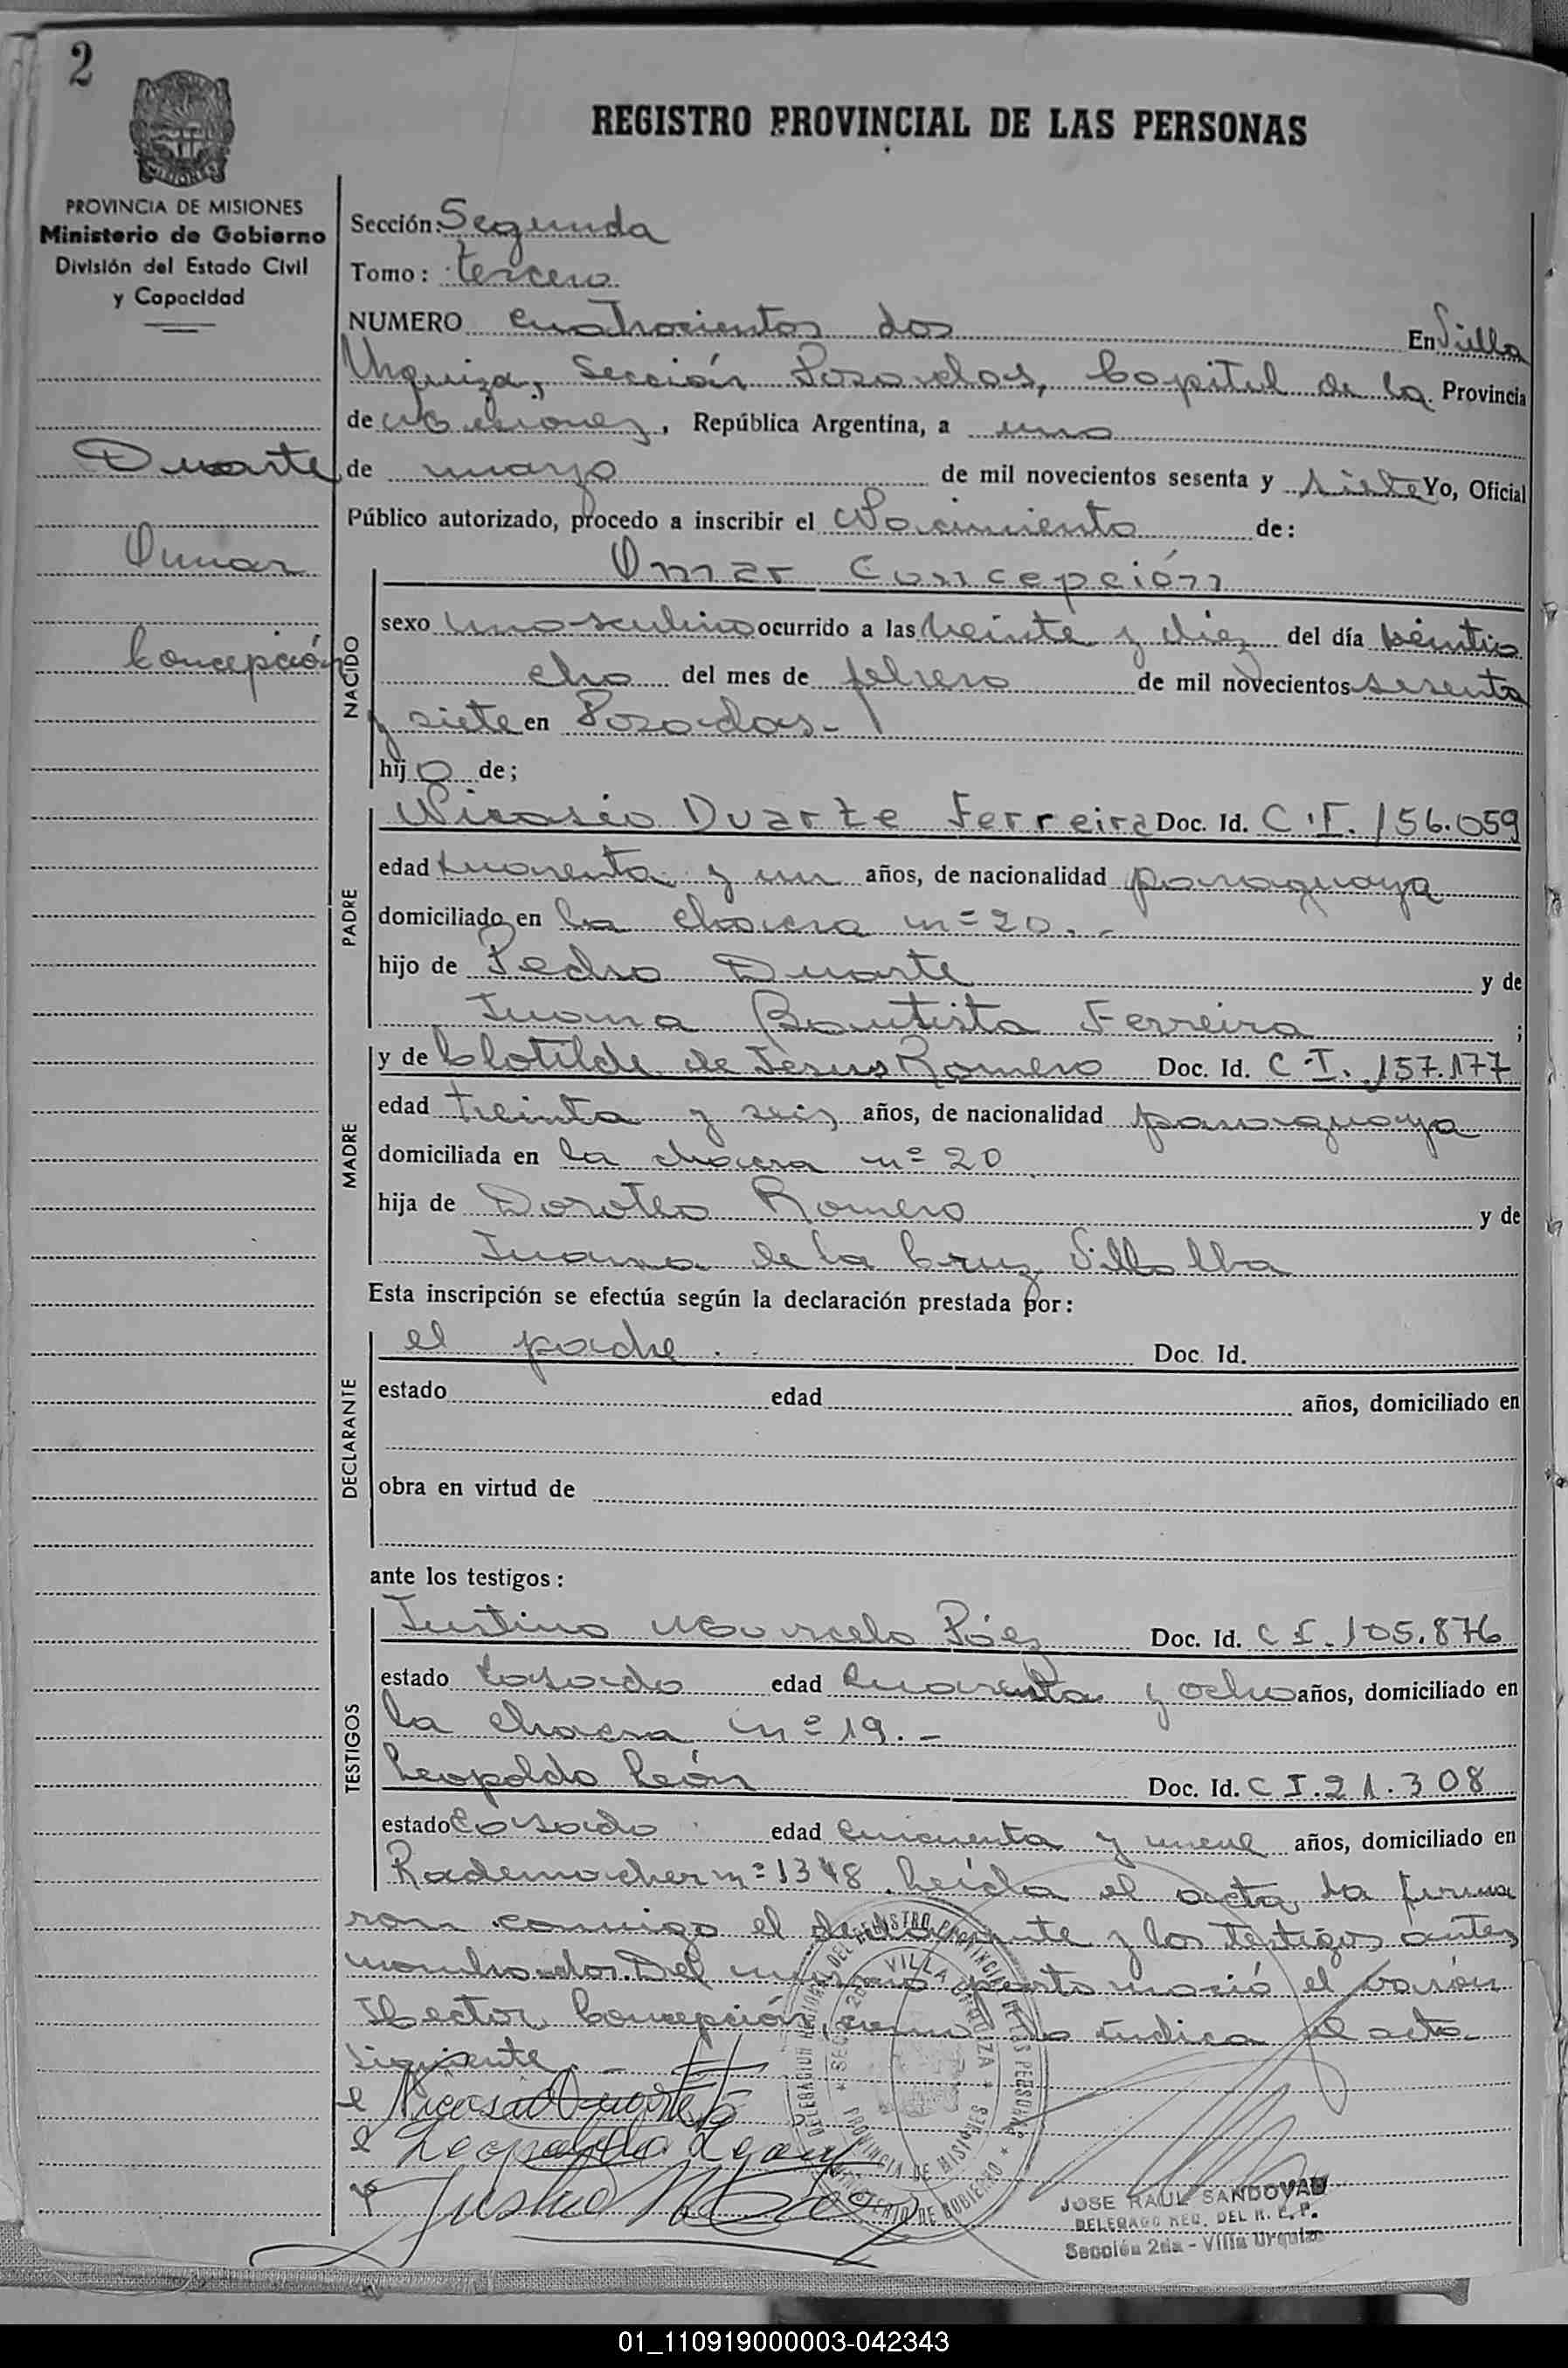 2
MISIONES
PROVINCIA DE MISIONES
Ministerio de Gobierno
División del Estado Civil
y Capacidad
Duarte
Omar
Concepción
REGISTRO PROVINCIAL DE LAS PERSONAS
Sección: Segunda
Tomo: tercero
NUMERO cuatrocientos dos En Villa
Urquiza, Sección Posadas, Capital de la Provincia
de Misiones, República Argentina, a uno
de marzo de mil novecientos sesenta y siete Yo, Oficial
Público autorizado, procedo a inscribir el Nacimiento de:
NACIDO
Omar Concepción
sexo masculino ocurrido a las veinte y diez del día veintio
cho del mes de febrero de mil novecientos sesenta
y siete en Posadas.-
hijo de;
PADRE
Nicasio Duarte Ferreira Doc. Id. C.I. 156.059
edad cuarenta y un años, de nacionalidad paraguaya
domiciliado en la chacra nº 20.-
hijo de Pedro Duarte y de
Juana Bautista Ferreira ;
MADRE
y de Clotilde de Jesus Romero Doc. Id. C.I. 157.177
edad treinta y seis años, de nacionalidad paraguaya
domiciliada en la chacra nº 20
hija de Doroteo Romero y de
Juana de la Cruz Villalba
Esta inscripción se efectúa según la declaración prestada por:
DECLARANTE
el padre. Doc. Id.
estado edad años, domiciliado en
obra en virtud de
ante los testigos:
TESTIGOS
Justino Marcelo Páez Doc. Id. C I. 105.876
estado casado edad cuarenta y ocho años, domiciliado en
la chacra nº 19.-
Leopoldo León Doc. Id. C I. 21.308
estado casado edad cincuenta y nueve años, domiciliado en
Rademacher nº 1348. Leída el acta la firma
ron conmigo el declarante y los testigos antes
nombrados. Del mismo parto nació el varón
Hector Concepción, como lo indica el acta
siguiente.-
Nicasio Duarte F
Leopoldo Leon
Justino M Paez
DELEGACION REGIONAL DEL REGISTRO PROVINCIAL DE LAS PERSONAS
MINISTERIO DE GOBIERNO
SEC. 2da. VILLA URQUIZA
PROVINCIA DE MISIONES
JOSE RAUL SANDOVAL
DELEGADO REG. DEL R. C. P.
Sección 2da - Villa Urquiza
01_110919000003-042343